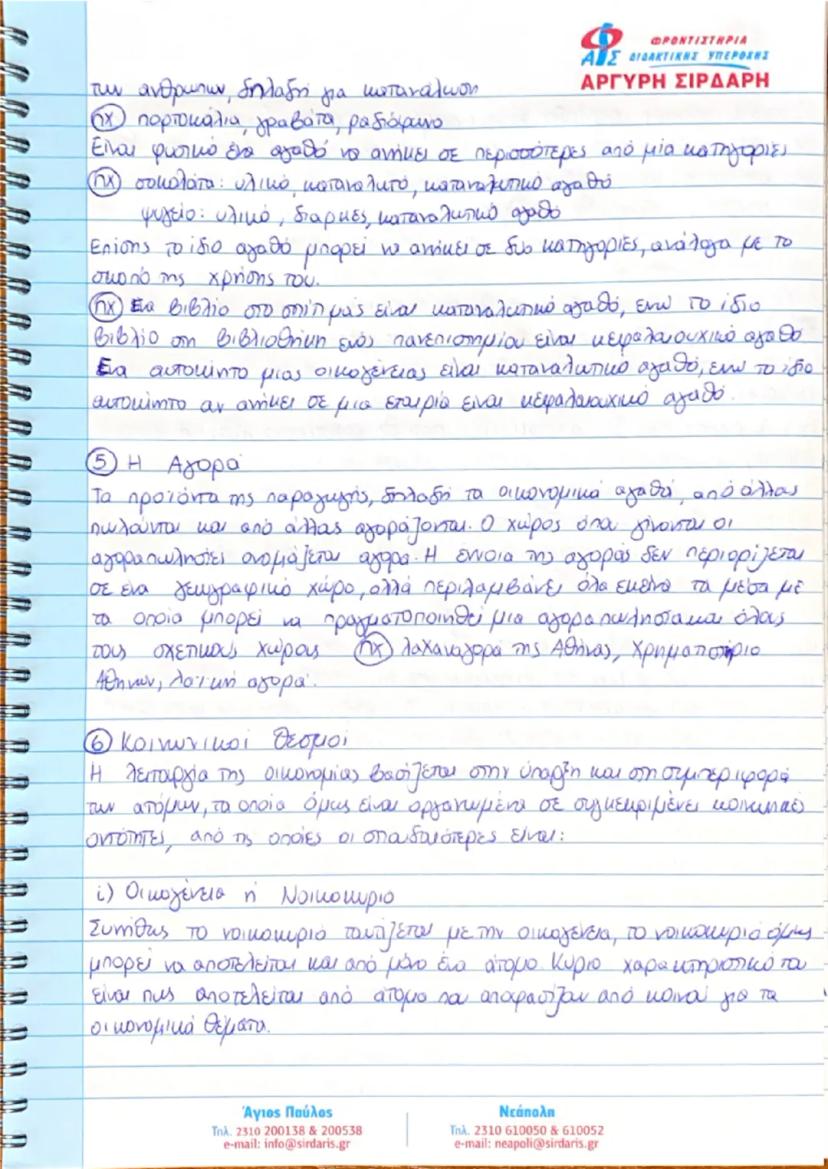 ΦΡΟΝΤΙΣΤΗΡΙΑ
ΔΙΔΑΚΤΙΚΗΣ ΥΠΕΡΟΧΗΣ
ΑΡΓΥΡΗ ΣΙΡΔΑΡΗ
των ανθρώπων, δηλαδή για κατανάλωση
πχ πορτοκάλια, γραβάτα, ραδιόφωνο
Είναι φυσικό ένα αγαθό να ανήκει σε περισσότερες από μία κατηγορίες
πχ σοκολάτα: υλικό, καταναλωτό, καταναλωτικό αγαθό
ψυγείο: υλικό, διαρκές, καταναλωτικό αγαθό
Επίσης το ίδιο αγαθό μπορεί να ανήκει σε δύο κατηγορίες, ανάλογα με το
σκοπό της χρήσης του.
πχ Ένα βιβλίο στο σπίτι μας είναι καταναλωτικό αγαθό, ενώ το ίδιο
βιβλίο στη βιβλιοθήκη ενός πανεπιστημίου είναι κεφαλαιουχικό αγαθό
Ένα αυτοκίνητο μιας οικογένειας είναι καταναλωτικό αγαθό, ενώ το ίδιο
αυτοκίνητο αν ανήκει σε μια εταιρία είναι κεφαλαιουχικό αγαθό.
5 Η Αγορά
Τα προϊόντα της παραγωγής, δηλαδή τα οικονομικά αγαθά, από άλλους
πωλούνται και από άλλους αγοράζονται. Ο χώρος όπου γίνονται οι
αγοραπωλησίες ονομάζεται αγορά. Η έννοια της αγοράς δεν περιορίζεται
σε ένα γεωγραφικό χώρο, αλλά περιλαμβάνει όλα εκείνα τα μέσα με
τα οποία μπορεί να πραγματοποιηθεί μια αγοραπωλησία και όλους
τους σχετικούς χώρους πχ λαχαναγορά της Αθήνας, Χρηματιστήριο
Αθηνών, λαϊκή αγορά.
6 Κοινωνικοί Θεσμοί
Η λειτουργία της οικονομίας βασίζεται στην ύπαρξη και στη συμπεριφορά
των ατόμων, τα οποία όμως είναι οργανωμένα σε συγκεκριμένες κοινωνικές
οντότητες, από τις οποίες οι σπουδαιότερες είναι:
i) Οικογένεια ή Νοικοκυριό
Συνήθως το νοικοκυριό ταυτίζεται με την οικογένεια, το νοικοκυριό όμως
μπορεί να αποτελείται και από μόνο ένα άτομο. Κύριο χαρακτηριστικό του
είναι πως αποτελείται από άτομα που αποφασίζουν από κοινού για τα
οικονομικά θέματα.
Άγιος Παύλος
Τηλ. 2310 200138 & 200538
e-mail: info@sirdaris.gr
Νεάπολη
Τηλ. 2310 610050 & 610052
e-mail: neapoli@sirdaris.gr